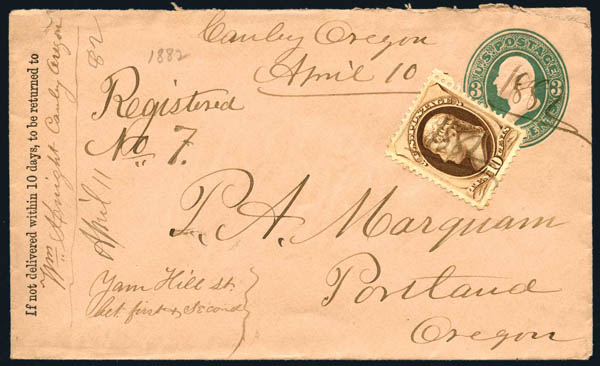 Canby Oregon
April 10
1882
Registered
No 7.
P. A. Marquam
Portland
Oregon
Yam Hill st.
bet. first & Second
If not delivered within 10 days, to be returned to
Wm Knight Canby Oregon
April 11 82
U.S. POSTAGE
3 3
CENTS
188
U.S. POSTAGE
10 CENTS